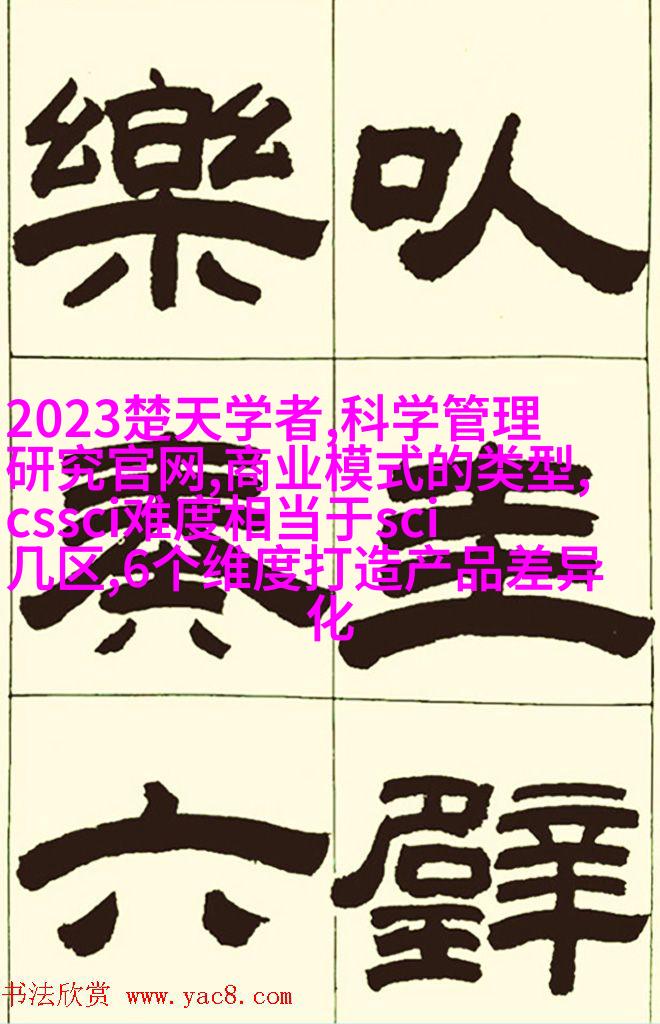 以圭璧
樂奏六
2023楚天学者,科学管理
研究官网,商业模式的类型,
cssci难度相当于sci
几区,6个维度打造产品差异
化
书法欣赏 www.yac8.com